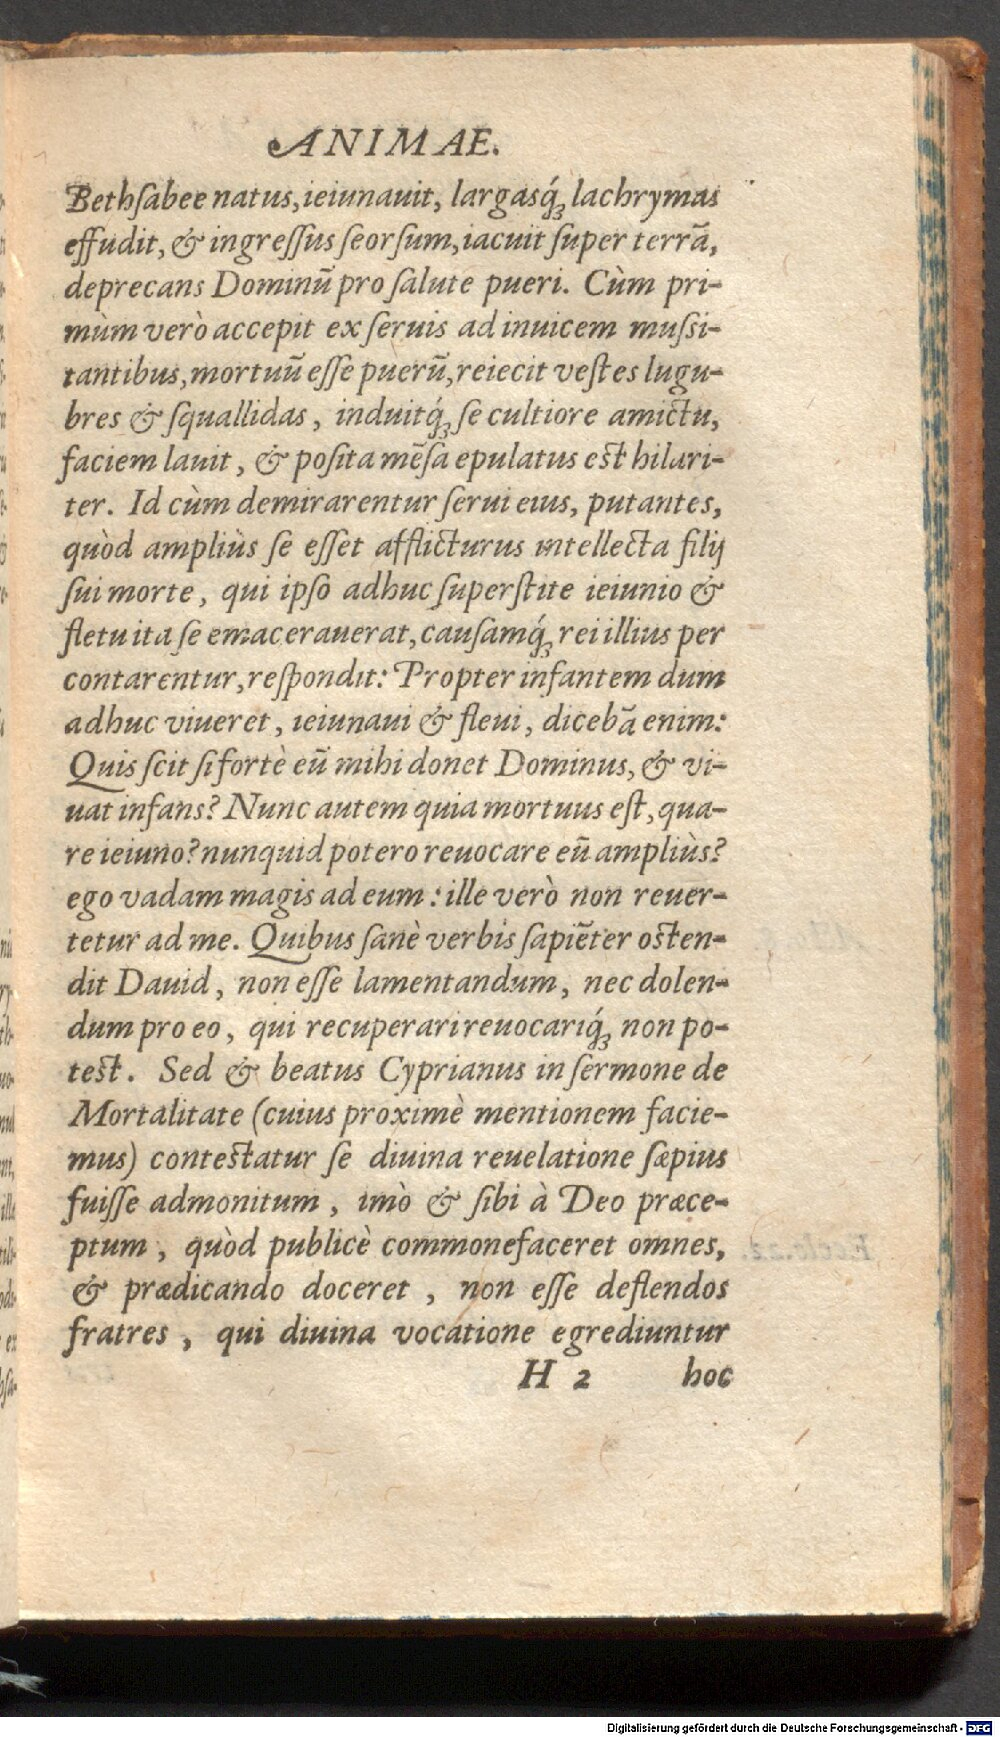 ANIMAE.
Bethſabee natus, ieiunauit, largasq́ꝫ lachrymas
effudit, & ingreſſus ſeorſum, iacuit ſuper terrā,
deprecans Dominū pro ſalute pueri. Cùm pri-
mùm verò accepit ex ſeruis ad inuicem muſsi-
tantibus, mortuū eſſe puerū, reiecit veſtes lugu-
bres & ſquallidas, induitq́ꝫ ſe cultiore amictu,
faciem lauit, & poſita mēſa epulatus est hilari-
ter. Id cùm demirarentur ſerui eius, putantes,
quòd ampliùs ſe eſſet afflicturus intellecta filij
ſui morte, qui ipſo adhuc ſuperſtite ieiunio &
fletu ita ſe emacerauerat, cauſamq́ꝫ rei illius per
contarentur, reſpondit: Propter infantem dum
adhuc viueret, ieiunaui & fleui, dicebā enim:
Quis ſcit ſi fortè eū mihi donet Dominus, & vi-
uat infans? Nunc autem quia mortuus eſt, qua-
re ieiuno? nunquid potero reuocare eū ampliùs?
ego vadam magis ad eum: ille verò non reuer-
tetur ad me. Quibus ſanè verbis ſapiēter osten-
dit Dauid, non eſſe lamentandum, nec dolen-
dum pro eo, qui recuperari reuocariq́ꝫ non po-
test. Sed & beatus Cyprianus in ſermone de
Mortalitate (cuius proximè mentionem facie-
mus) contestatur ſe diuina reuelatione ſæpius
fuiſſe admonitum, imò & ſibi à Deo præce-
ptum, quòd publicè commonefaceret omnes,
& prædicando doceret, non eſſe deflendos
fratres, qui diuina vocatione egrediuntur
H 2 hoc
Digitalisierung gefördert durch die Deutsche Forschungsgemeinschaft - DFG